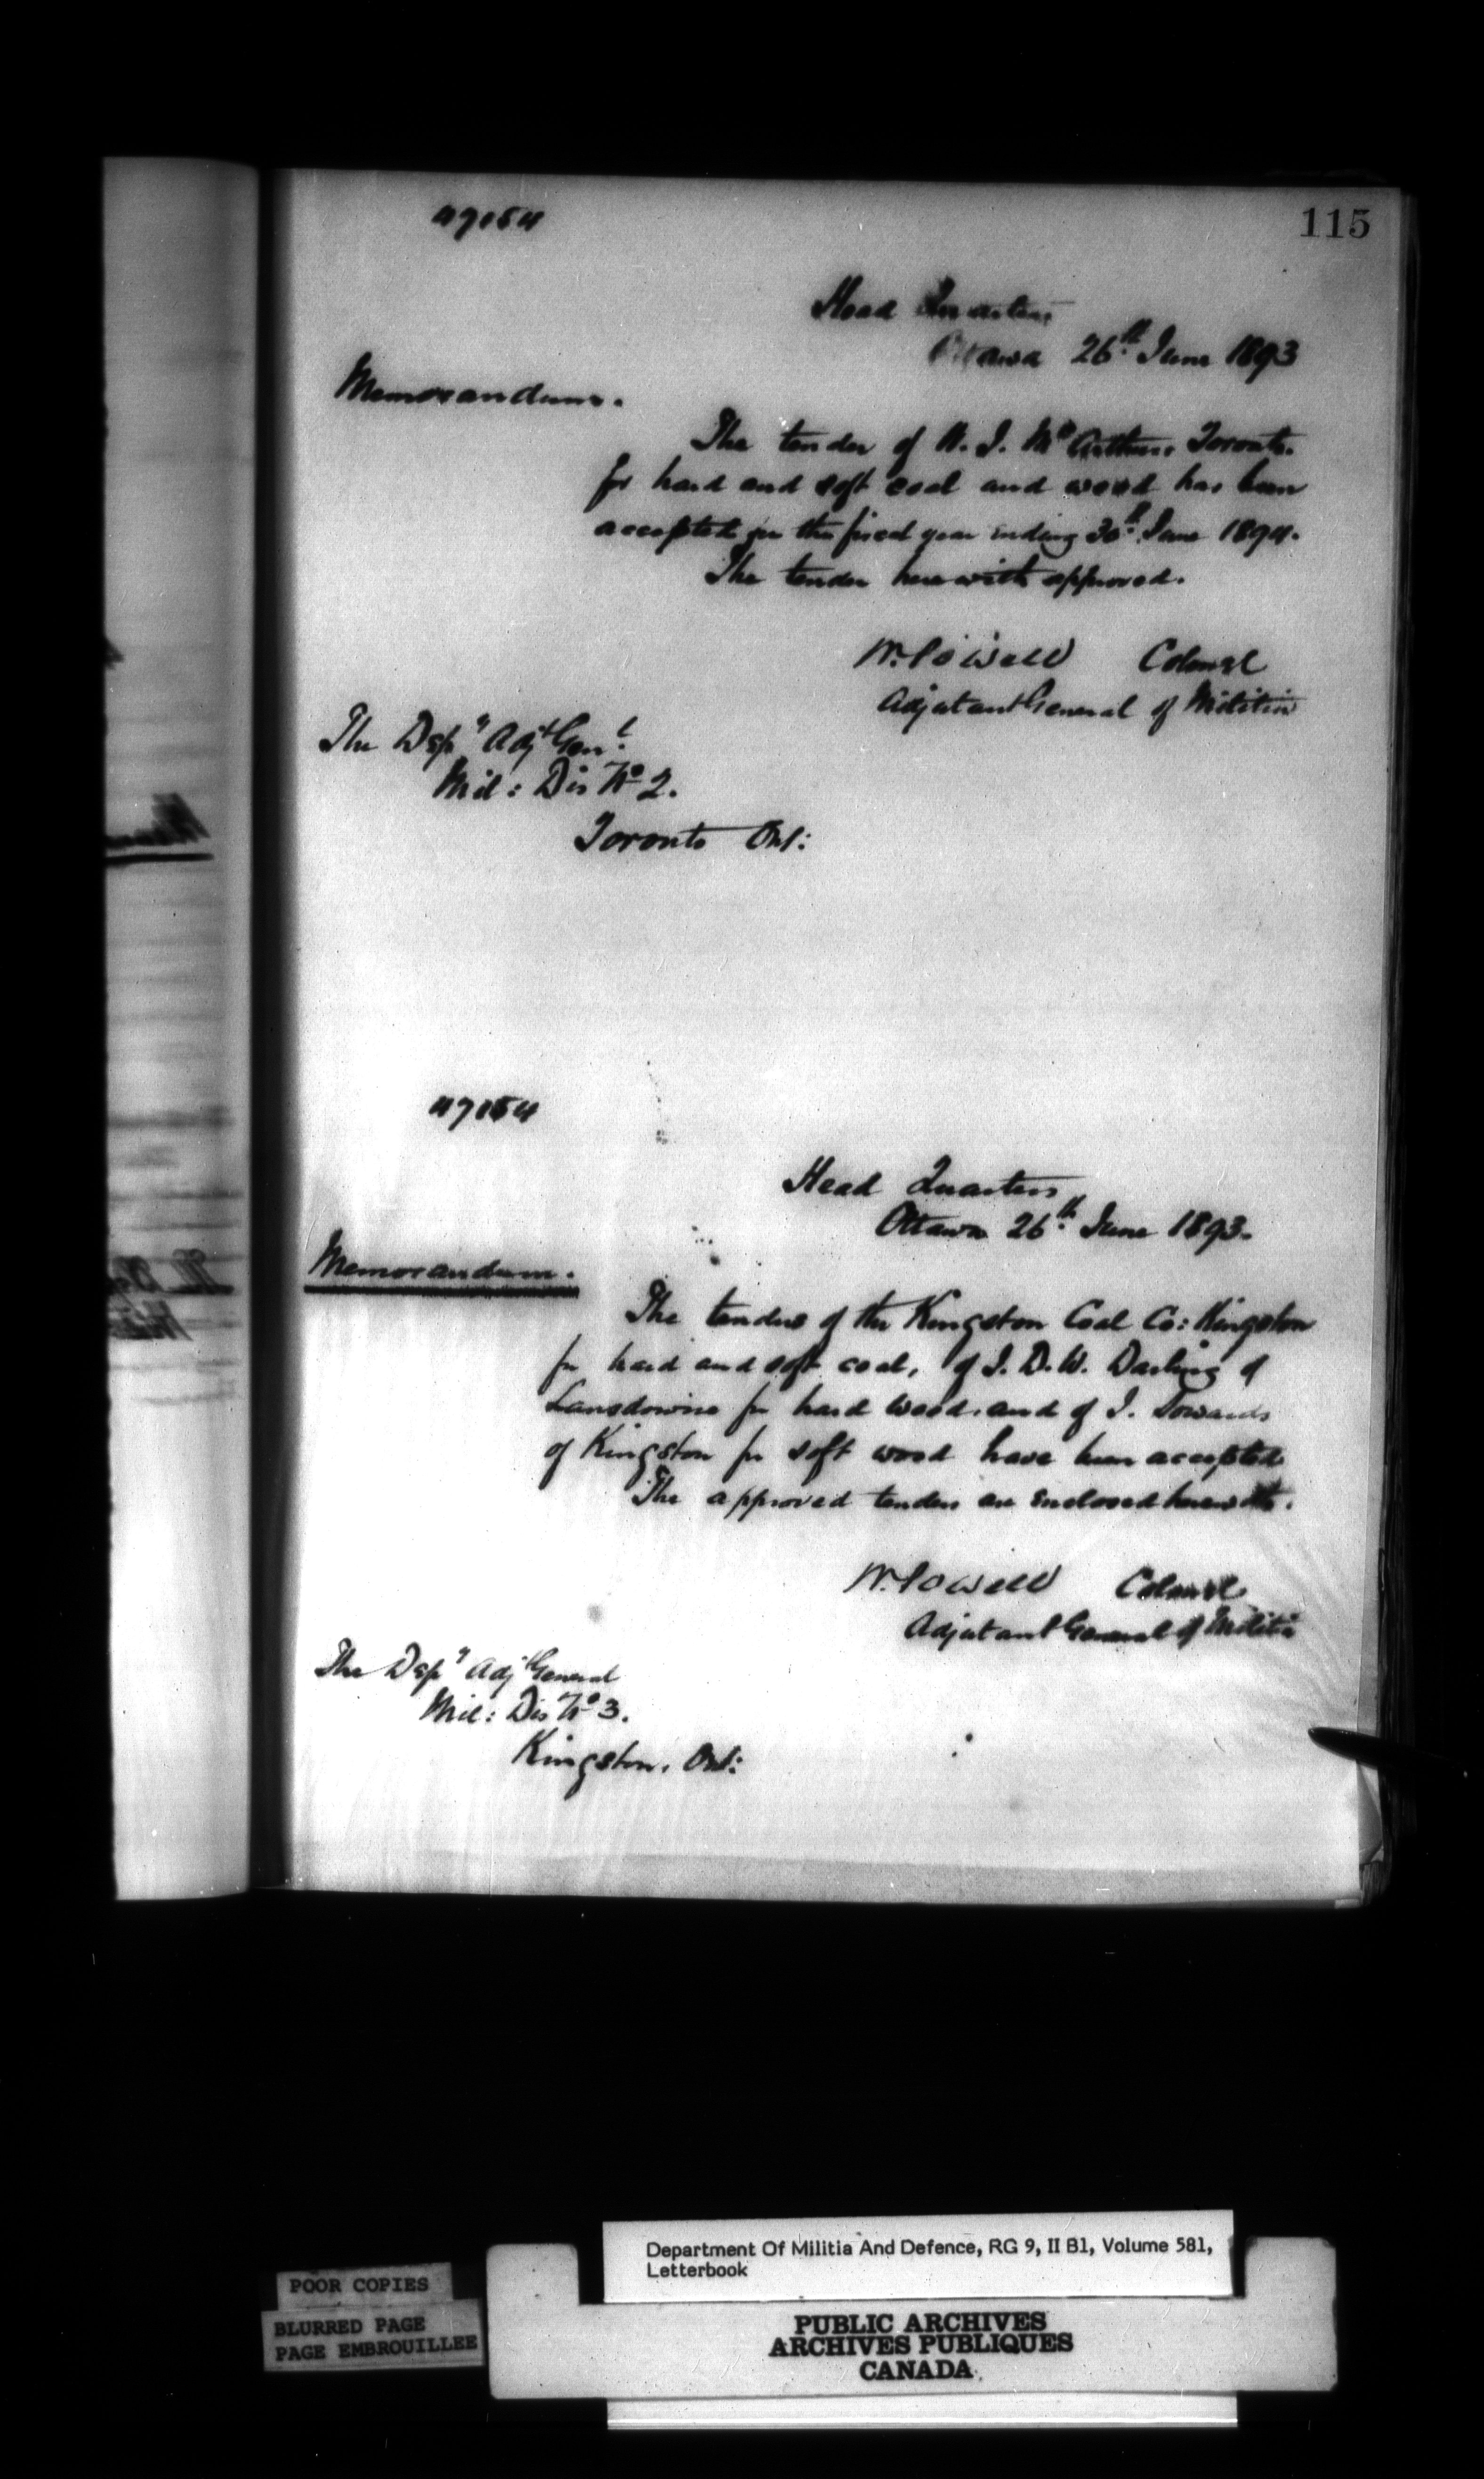 47154
115
Head Quarters
Ottawa 26th June 1893
Memorandum.
The tender of W. J. McArthur Toronto.
for hard and soft coal and wood has been
accepted for the fiscal year ending 30th June 1894.
The tender herewith approved.
W. Powell Colonel
Adjutant General of Militia
The Depy Adjt Genl.
Mil: Dis No 2.
Toronto Ont:
47154
Head Quarters
Ottawa 26th June 1893.
Memorandum.
The tenders of the Kingston Coal Co: Kingston
for hard and soft coal, of J. D. W. Darling of
Lansdowne for hard wood, and of I. Sowards
of Kingston for soft wood have been accepted
The approved tenders are enclosed herewith.
W. Powell Colonel
Adjutant General of Militia
The Depy Adjt General
Mil: Dis No 3.
Kingston, Ont:
Department Of Militia And Defence, RG 9, II B1, Volume 581,
Letterbook
POOR COPIES
BLURRED PAGE
PAGE EMBROUILLEE
PUBLIC ARCHIVES
ARCHIVES PUBLIQUES
CANADA